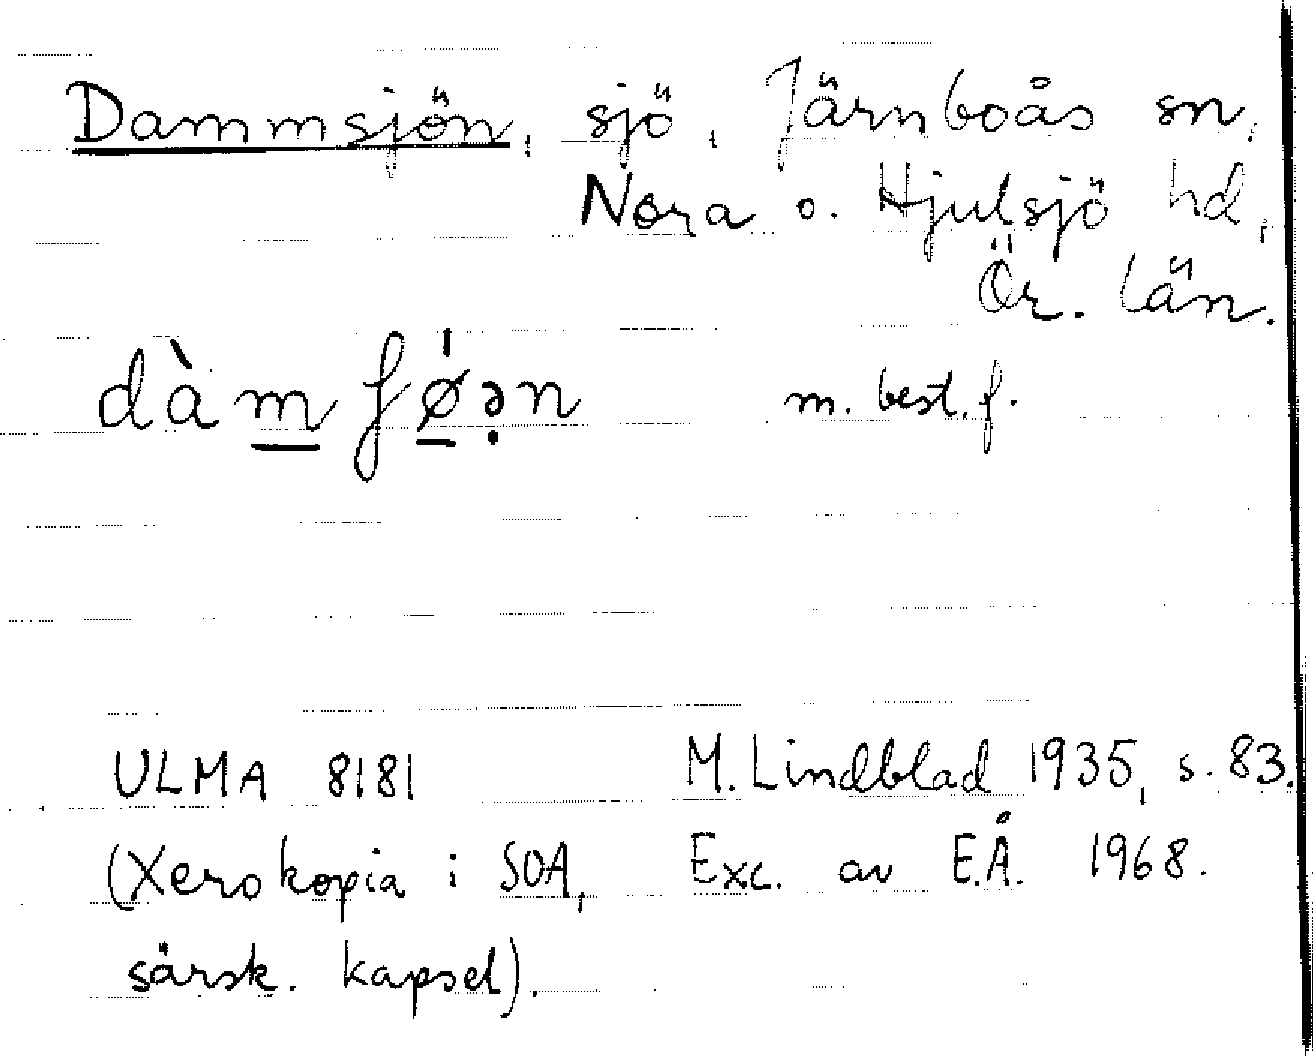 Dammsjön, sjö, Järnboås sn,
Nora o. Hjulsjö hd,
Ör. län.
dàm̲ʃø̲̍ə̣n m. best. f.
ULMA 8181 M. Lindblad 1935, s. 83.
(Xerokopia i SOA, Exc. av E.Å. 1968.
särsk. kapsel).